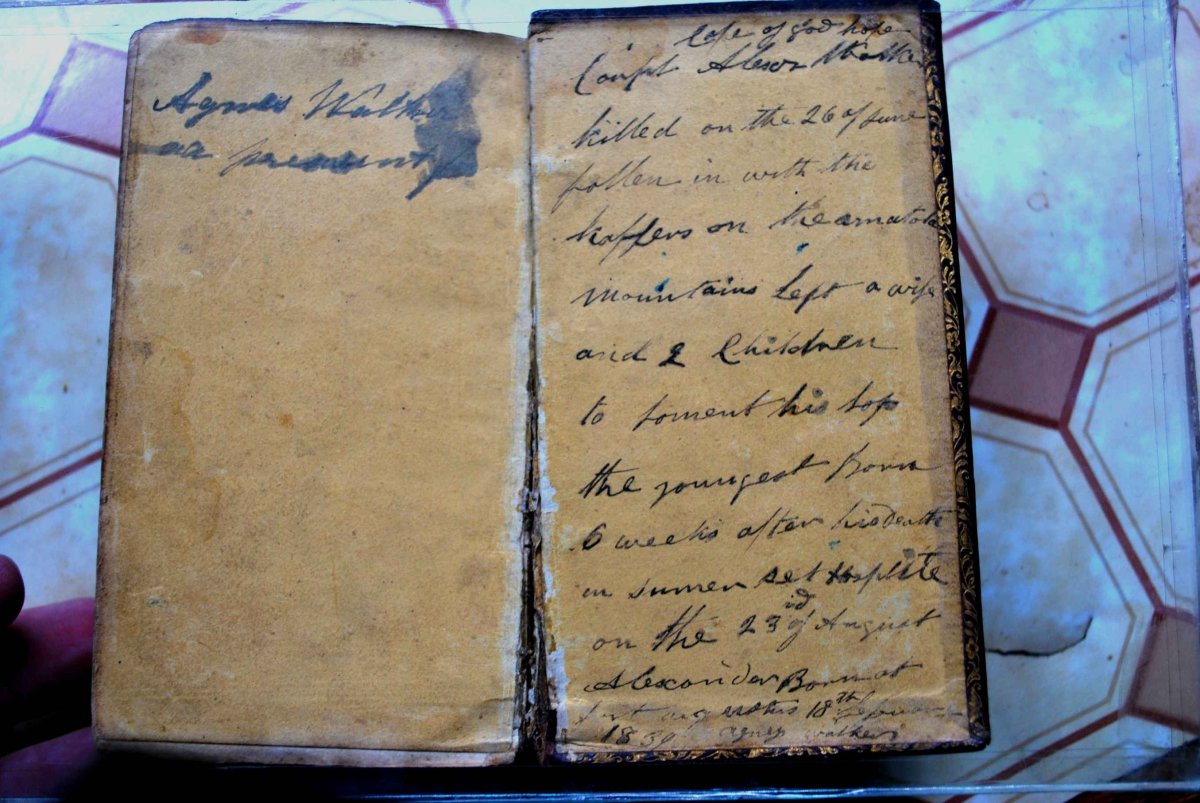 Agnes Walker
aa presunt
Cape of god hope
Coarpt Alexr Walker
killed on the 26 of June
follen in with the
kaffers on the amatola
mountains left a wife
and 2 Children
to loment his loss
the youngest Born
6 weeks after his Death
in sumer set Hosplite
on the 23 rd of August
Alexander Born at
fort augustus 18th
1830 agnes walker